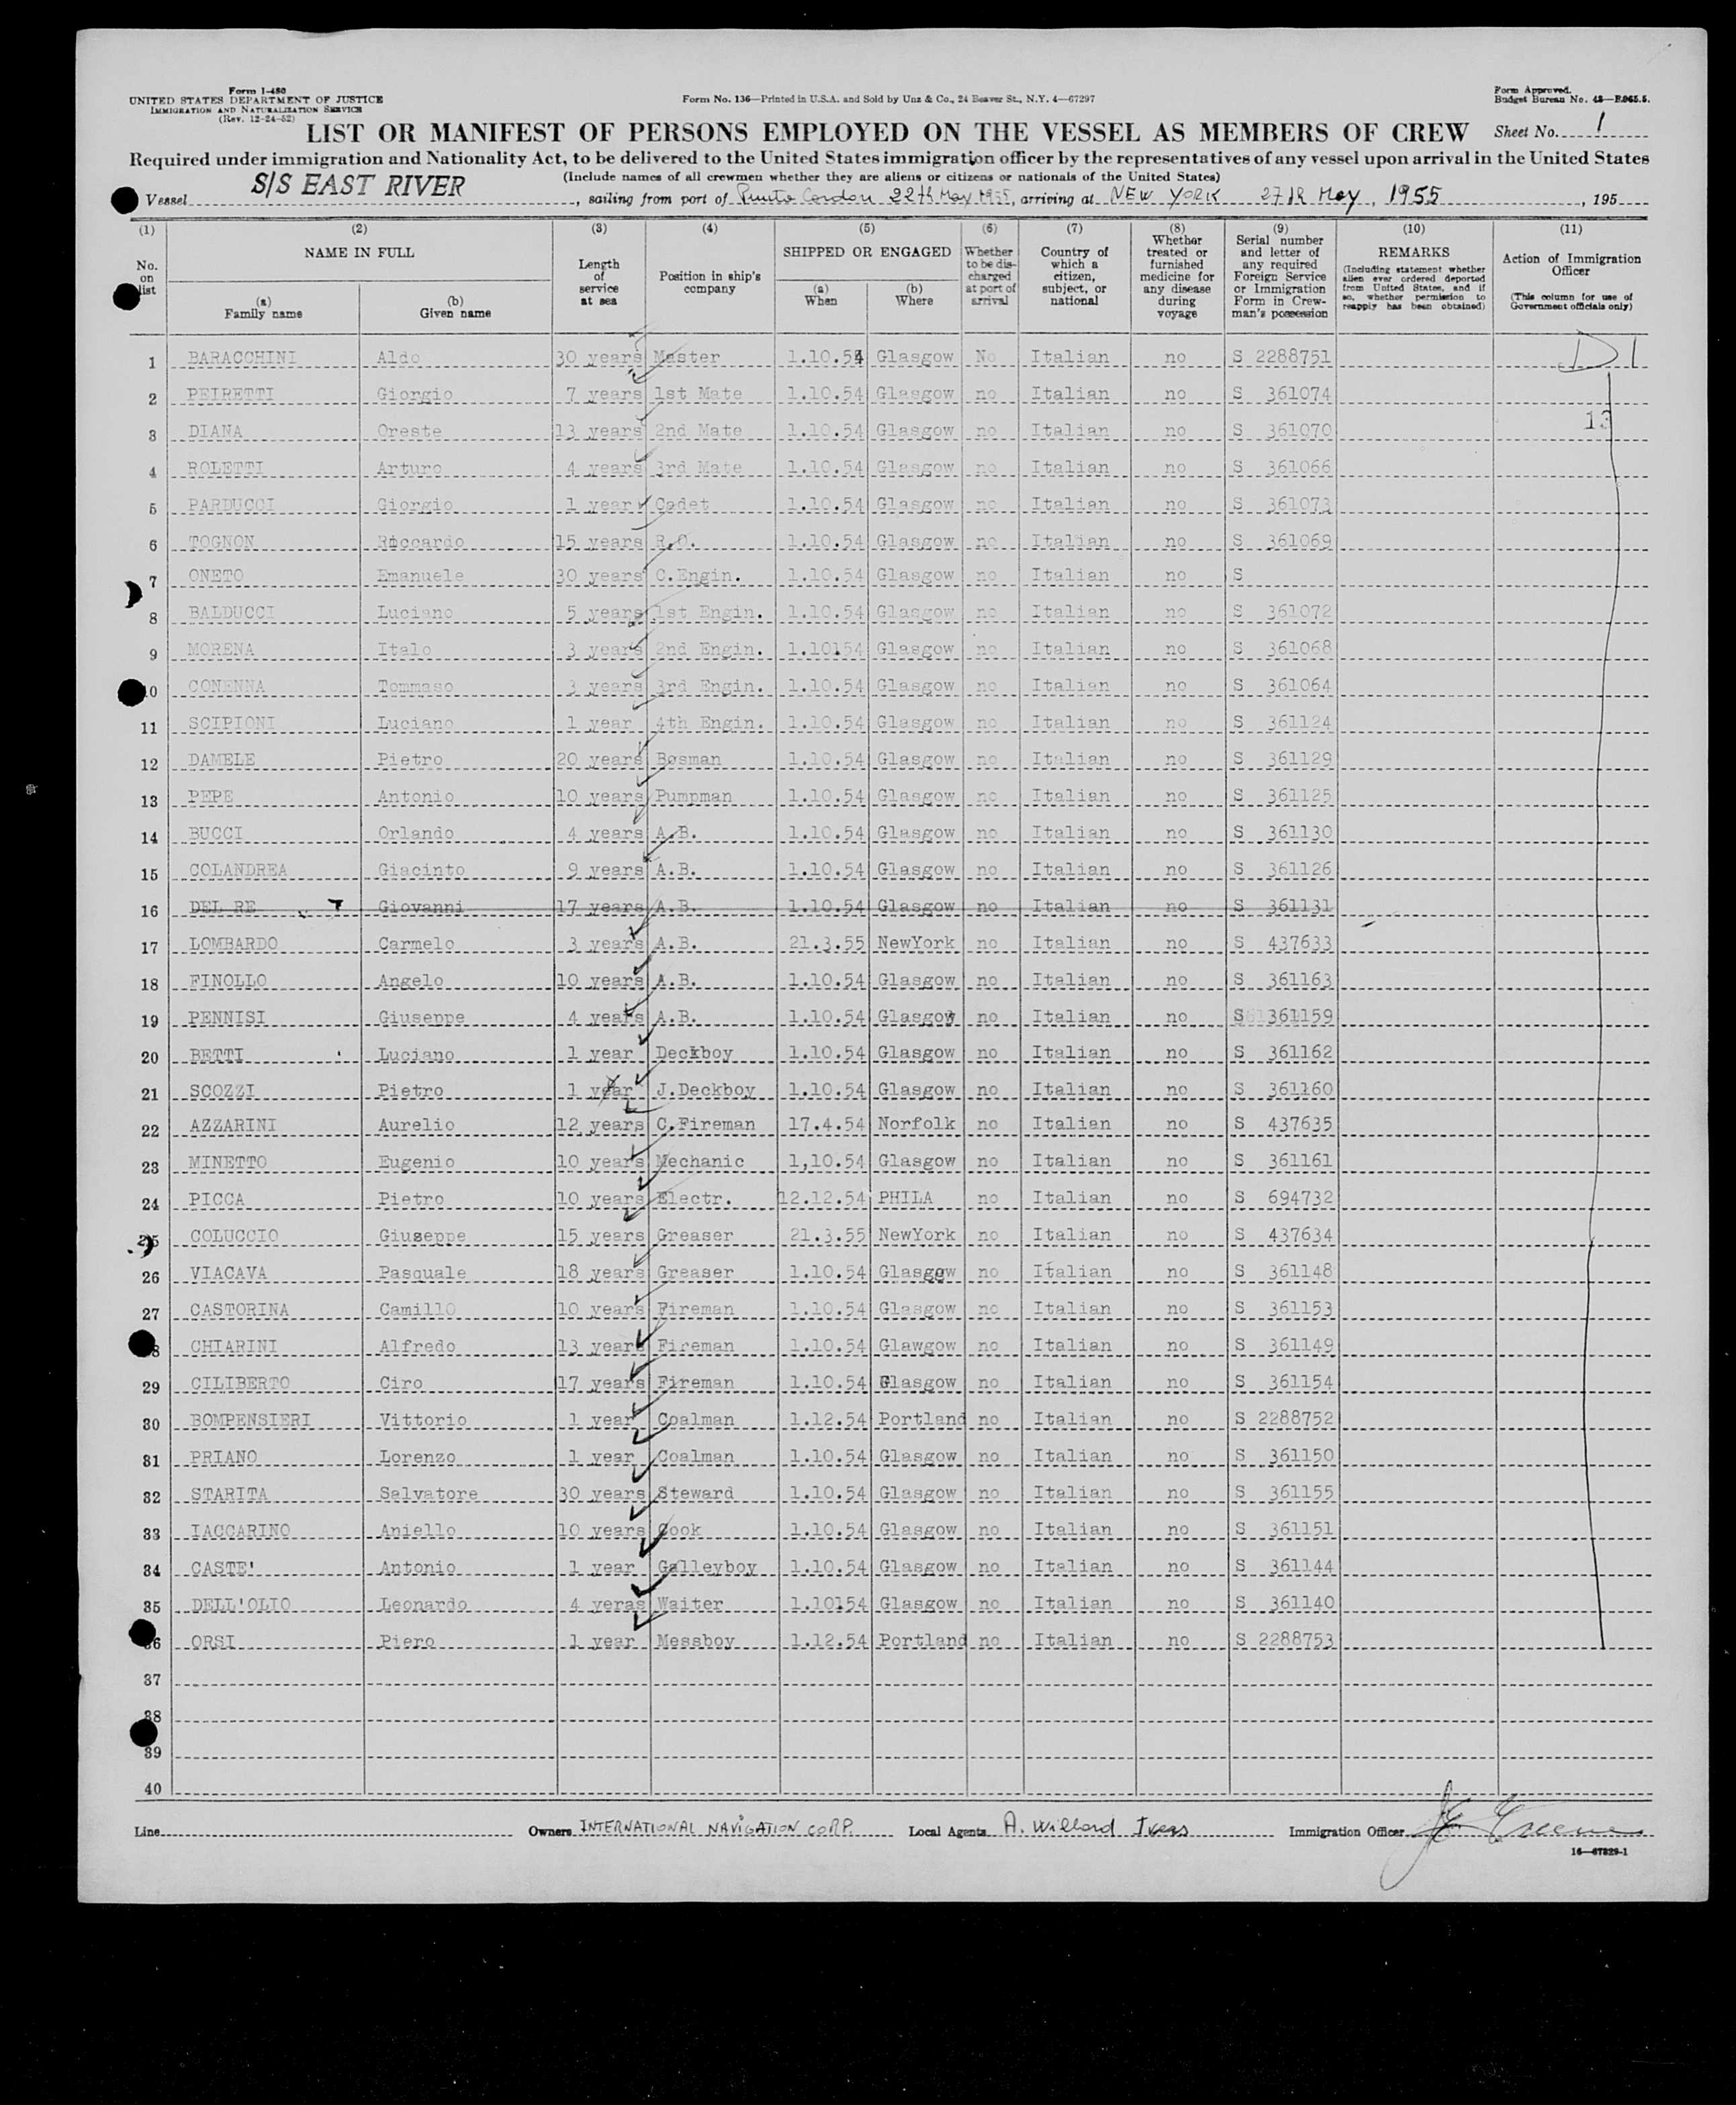 Form I-480
UNITED STATES DEPARTMENT OF JUSTICE
IMMIGRATION AND NATURALIZATION SERVICE
(Rev. 12-24-52)
Form No. 136—Printed in U.S.A. and Sold by Unz & Co., 24 Beaver St., N.Y. 4—67297
Form Approved.
Budget Bureau No. 43—R065.5.
LIST OR MANIFEST OF PERSONS EMPLOYED ON THE VESSEL AS MEMBERS OF CREW Sheet No. 1
Required under immigration and Nationality Act, to be delivered to the United States immigration officer by the representatives of any vessel upon arrival in the United States
(Include names of all crewmen whether they are aliens or citizens or nationals of the United States)
Vessel S/S EAST RIVER, sailing from port of Punto Cardon 22th May 1955, arriving at NEW YORK 27th May, 1955, 195
(1) No. on list
(2) NAME IN FULL (a) Family name (b) Given name
(3) Length of service at sea
(4) Position in ship's company
(5) SHIPPED OR ENGAGED (a) When (b) Where
(6) Whether to be discharged at port of arrival
(7) Country of which a citizen, subject, or national
(8) Whether treated or furnished medicine for any disease during voyage
(9) Serial number and letter of any required Foreign Service or Immigration Form in Crewman's possession
(10) REMARKS (Including statement whether alien ever ordered deported from United States, and if so, whether permission to reapply has been obtained)
(11) Action of Immigration Officer (This column for use of Government officials only)
1 BARACCHINI Aldo 30 years Master 1.10.54 Glasgow No Italian no S 2288751 D 1
2 PEIRETTI Giorgio 7 years 1st Mate 1.10.54 Glasgow no Italian no S 361074
3 DIANA Oreste 13 years 2nd Mate 1.10.54 Glasgow no Italian no S 361070 13
4 ROLETTI Arturo 4 years 3rd Mate 1.10.54 Glasgow no Italian no S 361066
5 PARDUCCI Giorgio 1 year Cadet 1.10.54 Glasgow no Italian no S 361073
6 TOGNON Riccardo 15 years R.O. 1.10.54 Glasgow no Italian no S 361069
7 ONETO Emanuele 30 years C.Engin. 1.10.54 Glasgow no Italian no S
8 BALDUCCI Luciano 5 years 1st Engin. 1.10.54 Glasgow no Italian no S 361072
9 MORENA Italo 3 years 2nd Engin. 1.10154 Glasgow no Italian no S 361068
10 CONENNA Tommaso 3 years 3rd Engin. 1.10.54 Glasgow no Italian no S 361064
11 SCIPIONI Luciano 1 year 4th Engin. 1.10.54 Glasgow no Italian no S 361124
12 DAMELE Pietro 20 years Bosman 1.10.54 Glasgow no Italian no S 361129
13 PEPE Antonio 10 years Pumpman 1.10.54 Glasgow no Italian no S 361125
14 BUCCI Orlando 4 years A.B. 1.10.54 Glasgow no Italian no S 361130
15 COLANDREA Giacinto 9 years A.B. 1.10.54 Glasgow no Italian no S 361126
16 DEL RE Giovanni 17 years A.B. 1.10.54 Glasgow no Italian no S 361131
17 LOMBARDO Carmelo 3 years A.B. 21.3.55 NewYork no Italian no S 437633
18 FINOLLO Angelo 10 years A.B. 1.10.54 Glasgow no Italian no S 361163
19 PENNISI Giuseppe 4 years A.B. 1.10.54 Glasgow no Italian no S 361159
20 BETTI Luciano 1 year Deckboy 1.10.54 Glasgow no Italian no S 361162
21 SCOZZI Pietro 1 year J.Deckboy 1.10.54 Glasgow no Italian no S 361160
22 AZZARINI Aurelio 12 years C.Fireman 17.4.54 Norfolk no Italian no S 437635
23 MINETTO Eugenio 10 years Mechanic 1,10.54 Glasgow no Italian no S 361161
24 PICCA Pietro 10 years Electr. 12.12.54 PHILA no Italian no S 694732
25 COLUCCIO Giuseppe 15 years Greaser 21.3.55 NewYork no Italian no S 437634
26 VIACAVA Pasquale 18 years Greaser 1.10.54 Glasgow no Italian no S 361148
27 CASTORINA Camillo 10 years Fireman 1.10.54 Glasgow no Italian no S 361153
28 CHIARINI Alfredo 13 years Fireman 1.10.54 Glawgow no Italian no S 361149
29 CILIBERTO Ciro 17 years Fireman 1.10.54 Glasgow no Italian no S 361154
30 BOMPENSIERI Vittorio 1 year Coalman 1.12.54 Portland no Italian no S 2288752
31 PRIANO Lorenzo 1 year Coalman 1.10.54 Glasgow no Italian no S 361150
32 STARITA Salvatore 30 years Steward 1.10.54 Glasgow no Italian no S 361155
33 IACCARINO Aniello 10 years Cook 1.10.54 Glasgow no Italian no S 361151
34 CASTE' Antonio 1 year Galleyboy 1.10.54 Glasgow no Italian no S 361144
35 DELL'OLIO Leonardo 4 veras Waiter 1.10154 Glasgow no Italian no S 361140
36 ORSI Piero 1 year Messboy 1.12.54 Portland no Italian no S 2288753
37
38
39
40
Line Owners INTERNATIONAL NAVIGATION CORP. Local Agents A. Willard Ivers Immigration Officer Greene
16—67829-1